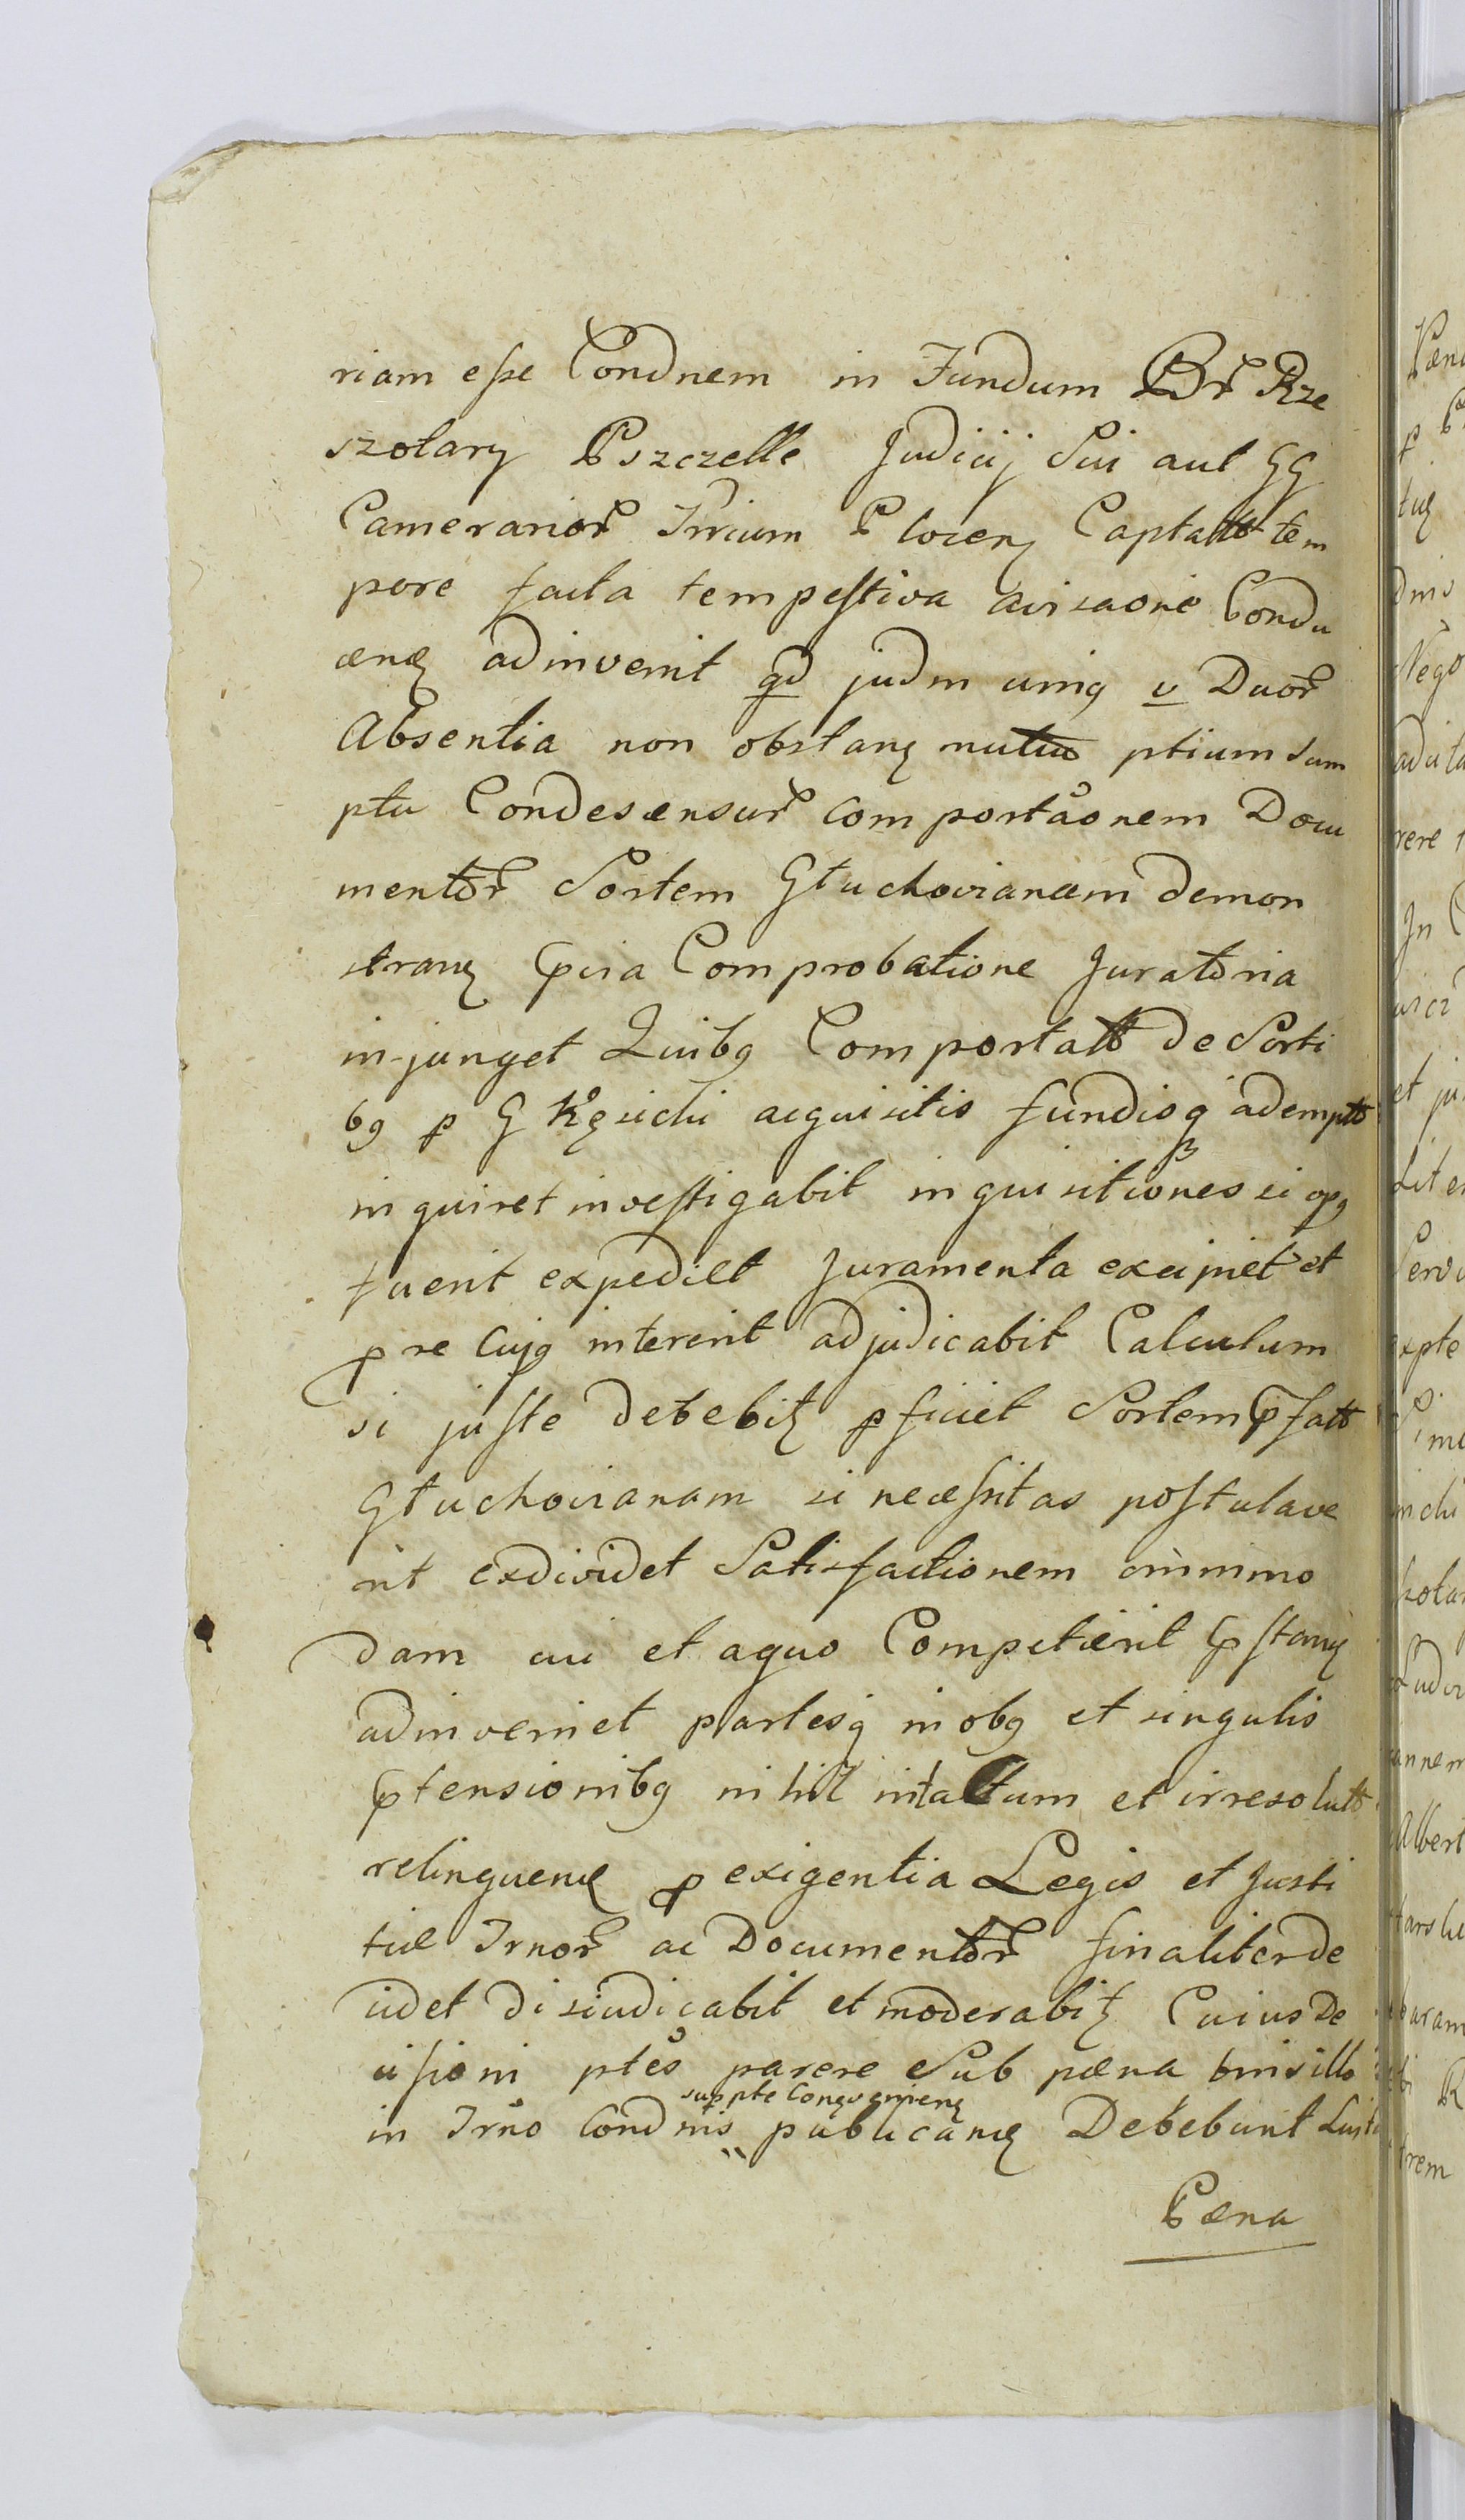 riam esse Condnem in Fundum Br Rze
szotary Pszczelle Judicij Sui aut GG
Camerarior Trrium Plocen Captatto tem
pore facta tempestiva avisaone Condu
cenda adinvenit qd judm unig v Duor
Absentia non obstan ptium sum
ptu Condescensur comportaonem Docu
mentor Sortem Głuchovianam demon
stran Gpvia Comprobatione Juratoria
in-junget Quibg Comportatt de Sorti
bg p G Kęsicki acquisitis fundisq adempto
inquiret investigabit inquisitiones si opg
fuerit expediet Juramenta excipiet et
p re cujg intererit adjudicabit Calculum
si juste debebit pficiet Sortem pfatt
Głuchovianam si necessitas postulave
rit exdividet Satisfactionem omnimo
dam cui et aquo Competierit pstan
adinveniet partesq in obg et singulis
ptensionibg nihil intactum et irresolutt
relinquend p exigentia Legis et Justi
tiæ Irnor ac Documentor finaliter de
cidet disiudicabit et moderabit Cuius De
cisioni ptes parere Sub pæna
suppte Conqverien
in Irno Condnis publicand Debebunt Luit
Pæna